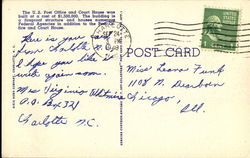 The U.S. Post Office and Court House was
built at a cost of $1,500,000. The building is
a tropical structure and houses numerous
Federal Agencies in addition to the Post Of-
fice and Court House.
POST CARD
Here is you card
from Charlotte N.C.
I hope you like it
with your own.
Mrs Virginia Whitmire
P.O. Box 321
Charlotte N.C.
SEP 24
Miss Leona Funk
1108 N. Dearborn
Chicago,
Ill.